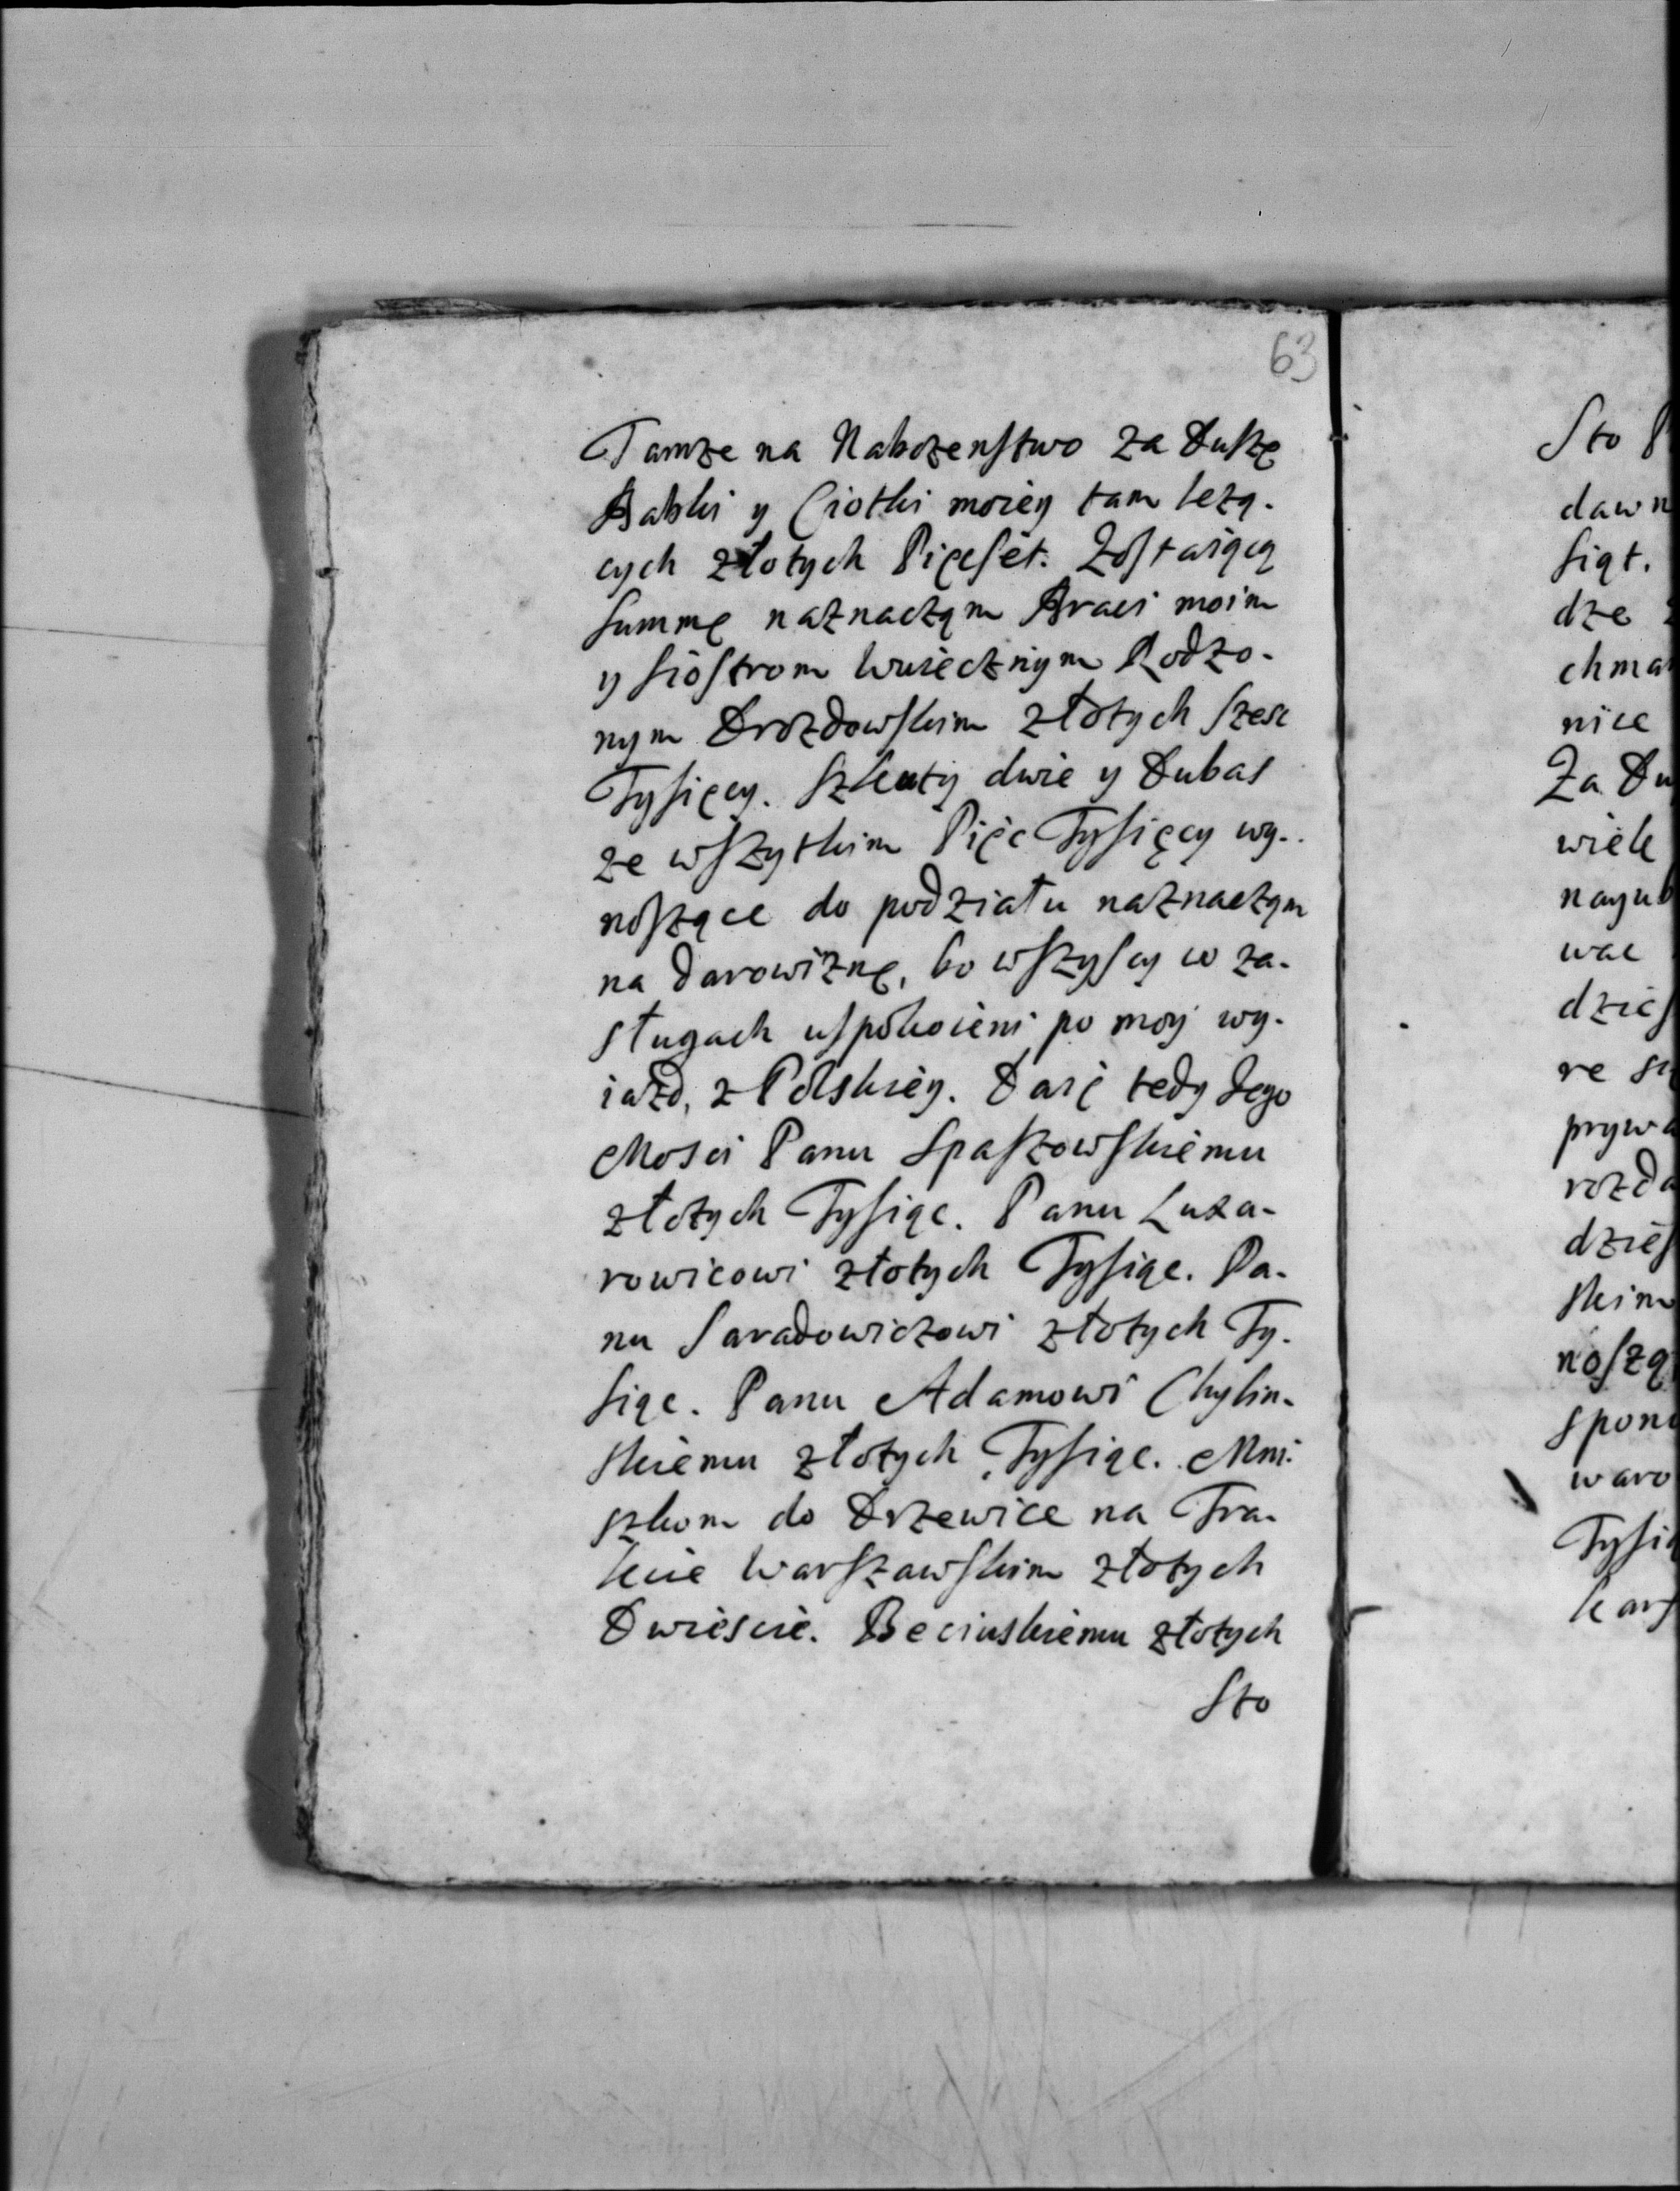 63
Tamze na Nabozenstwo za Duszę
Babki y Ciotki moiey tam lezą-
cych złotych Pięcset. Zostaiącą
summę naznaczam Braci moim
y siostrom Wuiecznym Rodzo-
nym Drozdowskim złotych szesc
Tysięcy. Szkuty dwie y Dubas
ze wszytkim Pięc Tysięcy wy-
noszące do podziału naznaczam
na darowiznę, bo wszyscy w za-
sługach uspokoieni po moy wy-
iazd, z Polskiey. Daię tedy Jego
Mosci Panu Spaszowskiemu
złotych Tysiąc. Panu Luza-
rowicowi złotych Tysiąc. Pa-
nu Saradowiczowi złotych Ty-
siąc. Panu Adamowi Chylin-
skiemu złotych Tysiąc. Mni-
szkom do Drzewice na Tra-
kcie Warszawskim złotych
Dwiescie. Beciuskiemu złotych
Sto
Sto
dawn
siąt.
dze
chma
nice
Za Du
wiele
nayub
wac
dzies
re su
prywa
rozda
dzies
skim
noszą
spon
waro
Tysią
kars